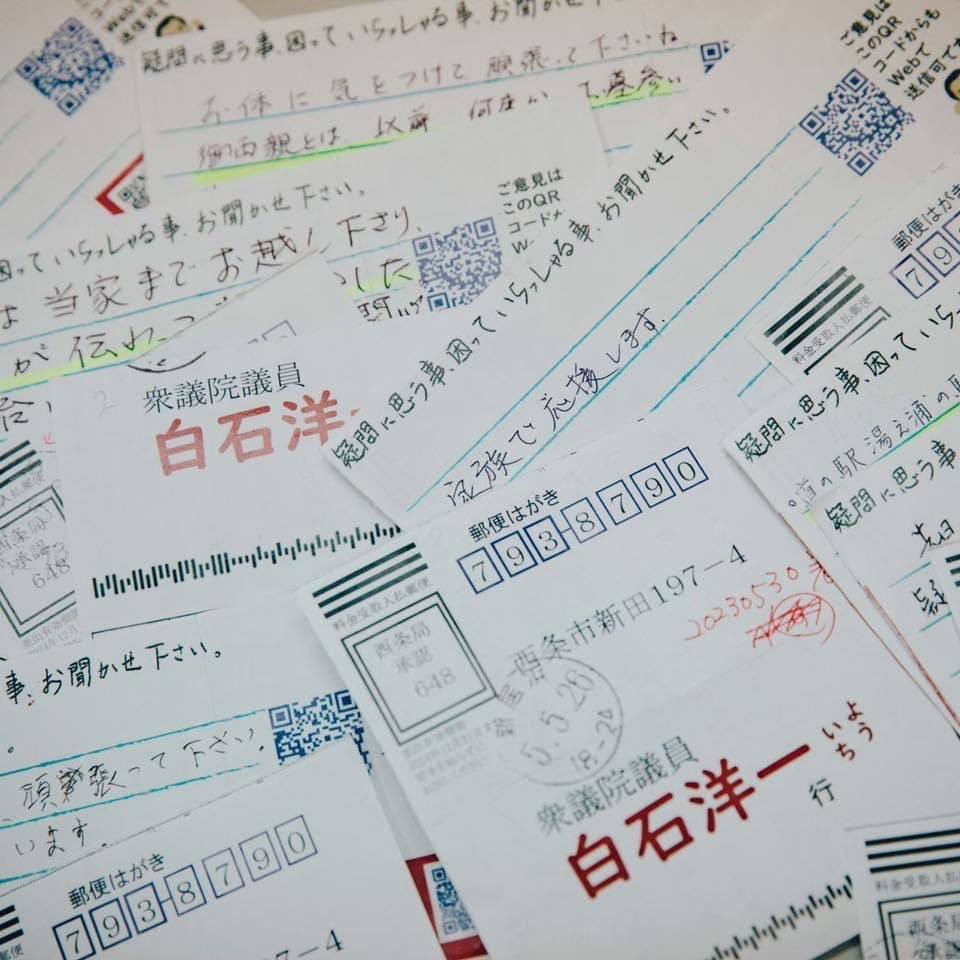 疑問に思う事、困っていらっしゃる事、お聞かせ下
お体に気をつけて頑張って下さいね
御両親とは、以前 何度か お墓参い
ご意見は
このQR
コードからも
Webで
送信可で
困っていらっしゃる事、お聞かせ下さい。
は当家までお越し下さり、
した
が伝わっ
ご意見は
このQR
コード
疑問に思う事、困っていらっしゃる事、お聞かせ下さい。
家族で応援します。
衆議院議員
白石洋一
西条局
承認
648
郵便はがき
料金受取人払郵便
疑問に思う事、困っていら
道の駅 湯え浦の
疑問に思う事
郵便はがき
793-8790
料金受取人払郵便
西条局
承認
648
西条市新田197-4
20230530
5.5.26
18-24
衆議院議員
白石洋一
よう
いち
行
事、お聞かせ下さい。
頑張って下さい。
います。
郵便はがき
793-8790
7-4
料金受取人払郵便
西条局